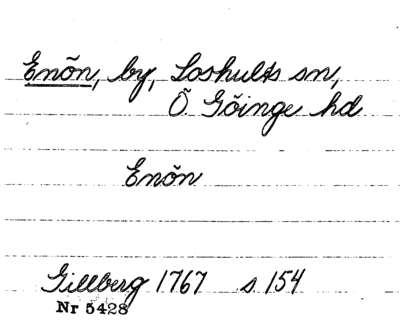 Enõn, by, Loshults sn,
Õ. Gõinge hd
Enõn
Gillberg 1767 s 154
Nr 5428